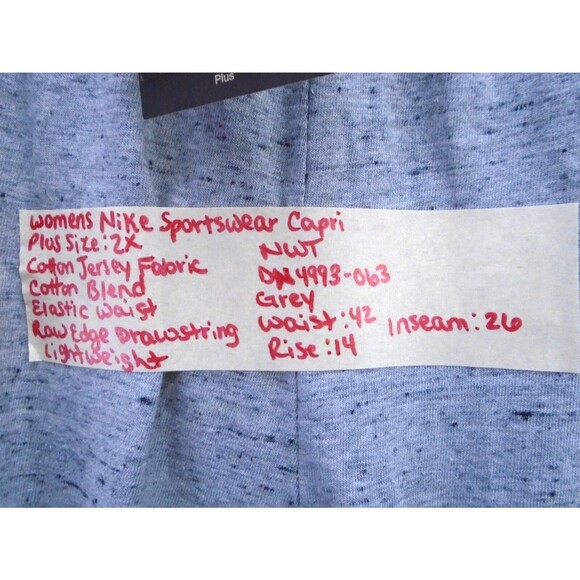 Plus
Womens Nike Sportswear Capri
Plus Size: 2X
Cotton Jersey Fabric
Cotton Blend
Elastic Waist
Raw Edge Drawstring
Lightweight
NWT
DN4993-063
Grey
Waist: 42
Rise: 14
Inseam: 26